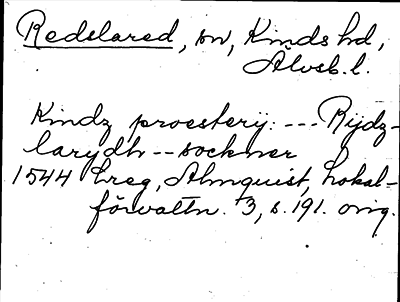 Redslared, sn, Kinds hd,
Älvsb. l.
Kindz proesterij: --- Rijdz-
larydh -- sockner
1544 Lreg, Almquist, Lokal-
förvaltn. 3, s. 191. orig.